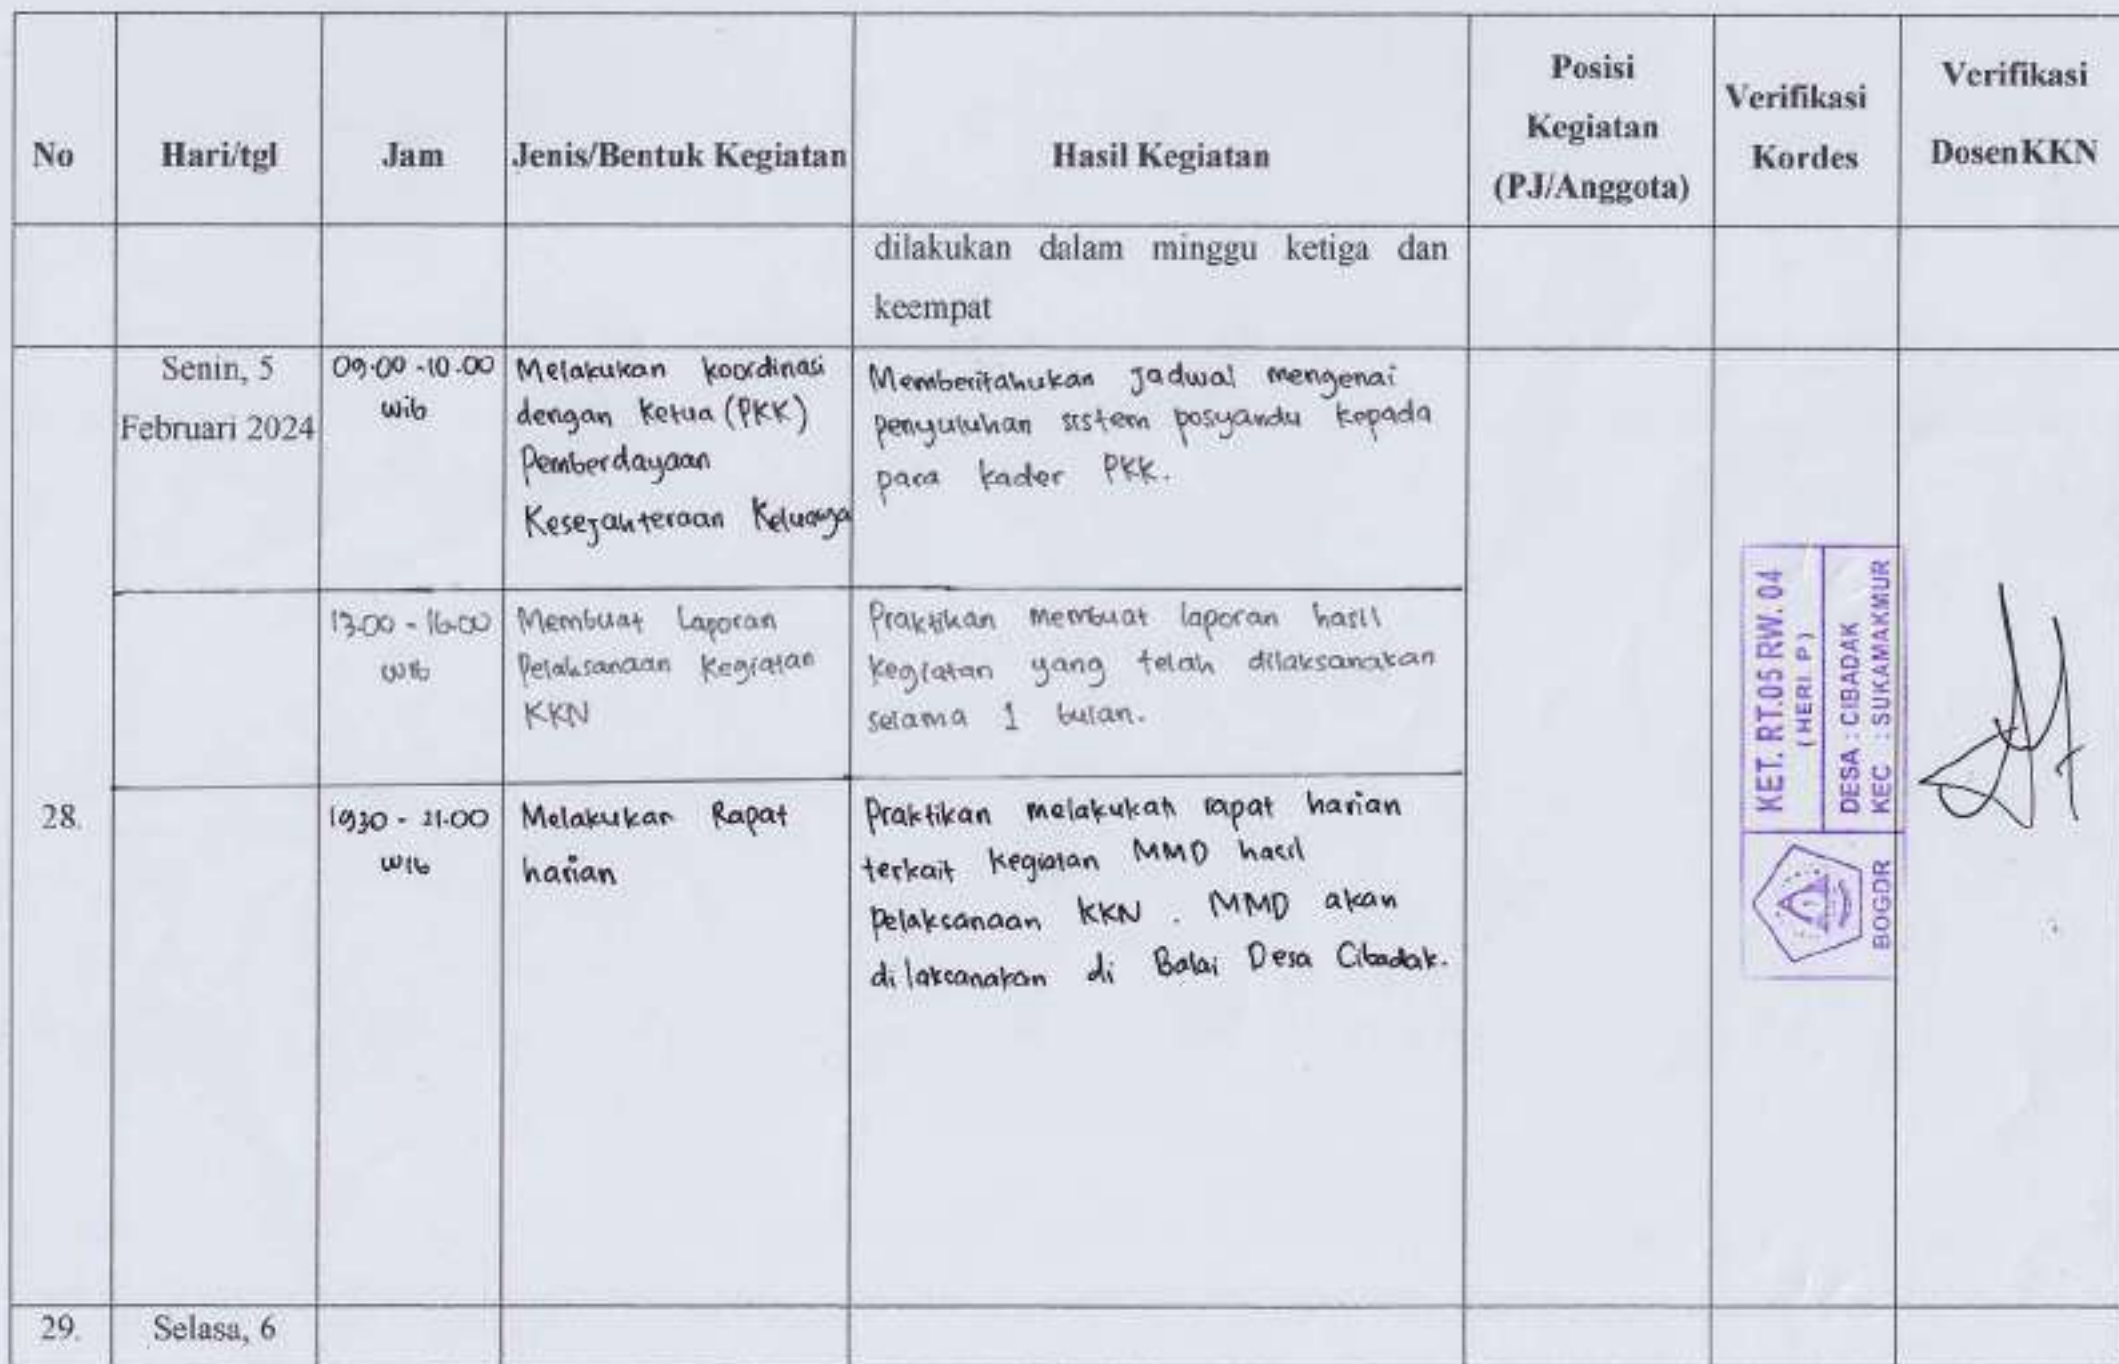 No
Hari/tgl
Jam
Jenis/Bentuk Kegiatan
Hasil Kegiatan
Posisi
Kegiatan
(PJ/Anggota)
Verifikasi
Kordes
Verifikasi
DosenKKN
dilakukan dalam minggu ketiga dan
keempat
28.
Senin, 5
Februari 2024
09.00 - 10.00
wib
Melakukan koordinasi
dengan Ketua (PKK)
Pemberdayaan
Kesejahteraan Keluarga
Memberitahukan jadwal mengenai
penyuluhan sistem posyandu kepada
para kader PKK.
13.00 - 16.00
wib
Membuat Laporan
Pelaksanaan Kegiatan
KKN
Praktikan membuat laporan hasil
kegiatan yang telah dilaksanakan
selama 1 bulan.
1930 - 21.00
wib
Melakukan Rapat
harian
Praktikan melakukan rapat harian
terkait kegiatan MMD hasil
Pelaksanaan KKN. MMD akan
dilaksanakan di Balai Desa Cibadak.
KET. RT.05 RW. 04
(HERI. P)
DESA : CIBADAK
KEC : SUKAMAKMUR
BOGOR
29.
Selasa, 6